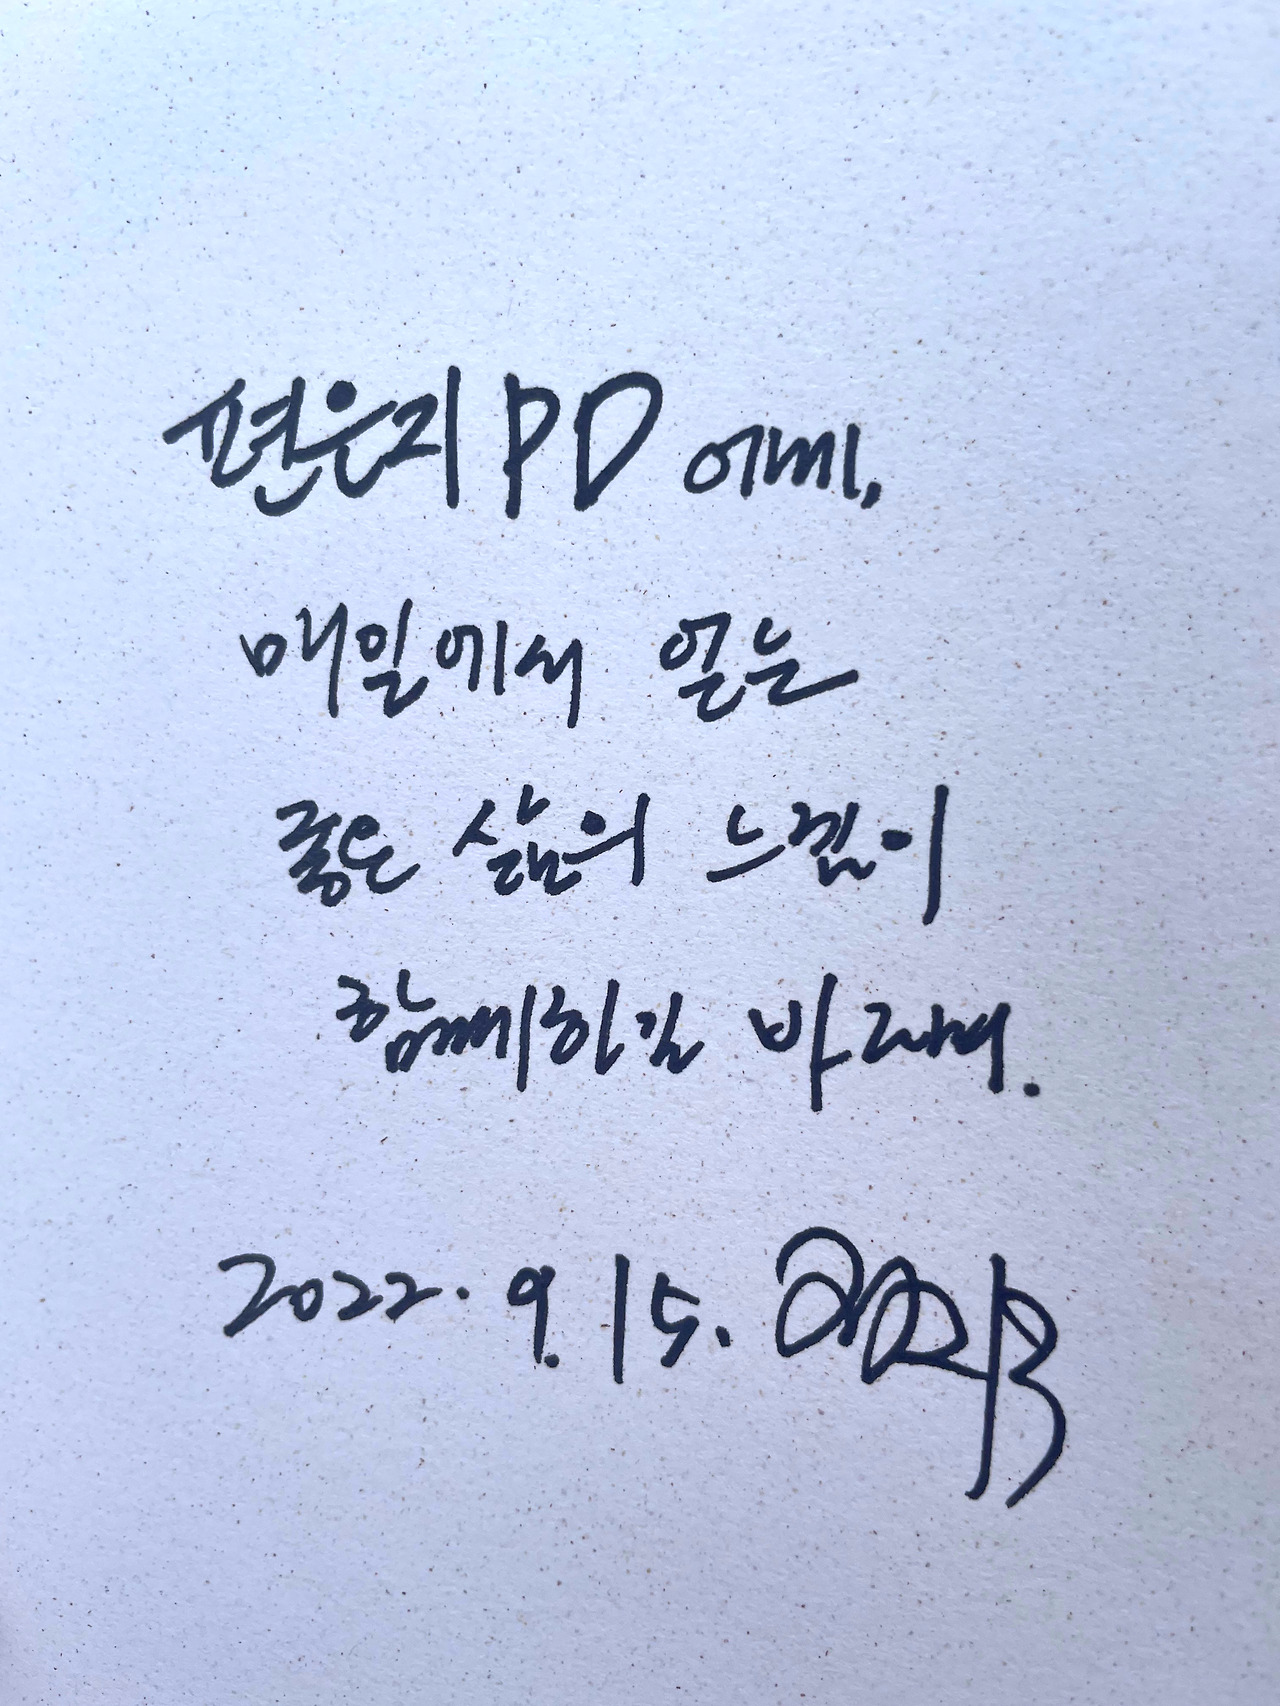 편은지 PD 에께,
매일에서 얻는
좋은 삶의 느낌이
함께하길 바라며.
2022. 9. 15.